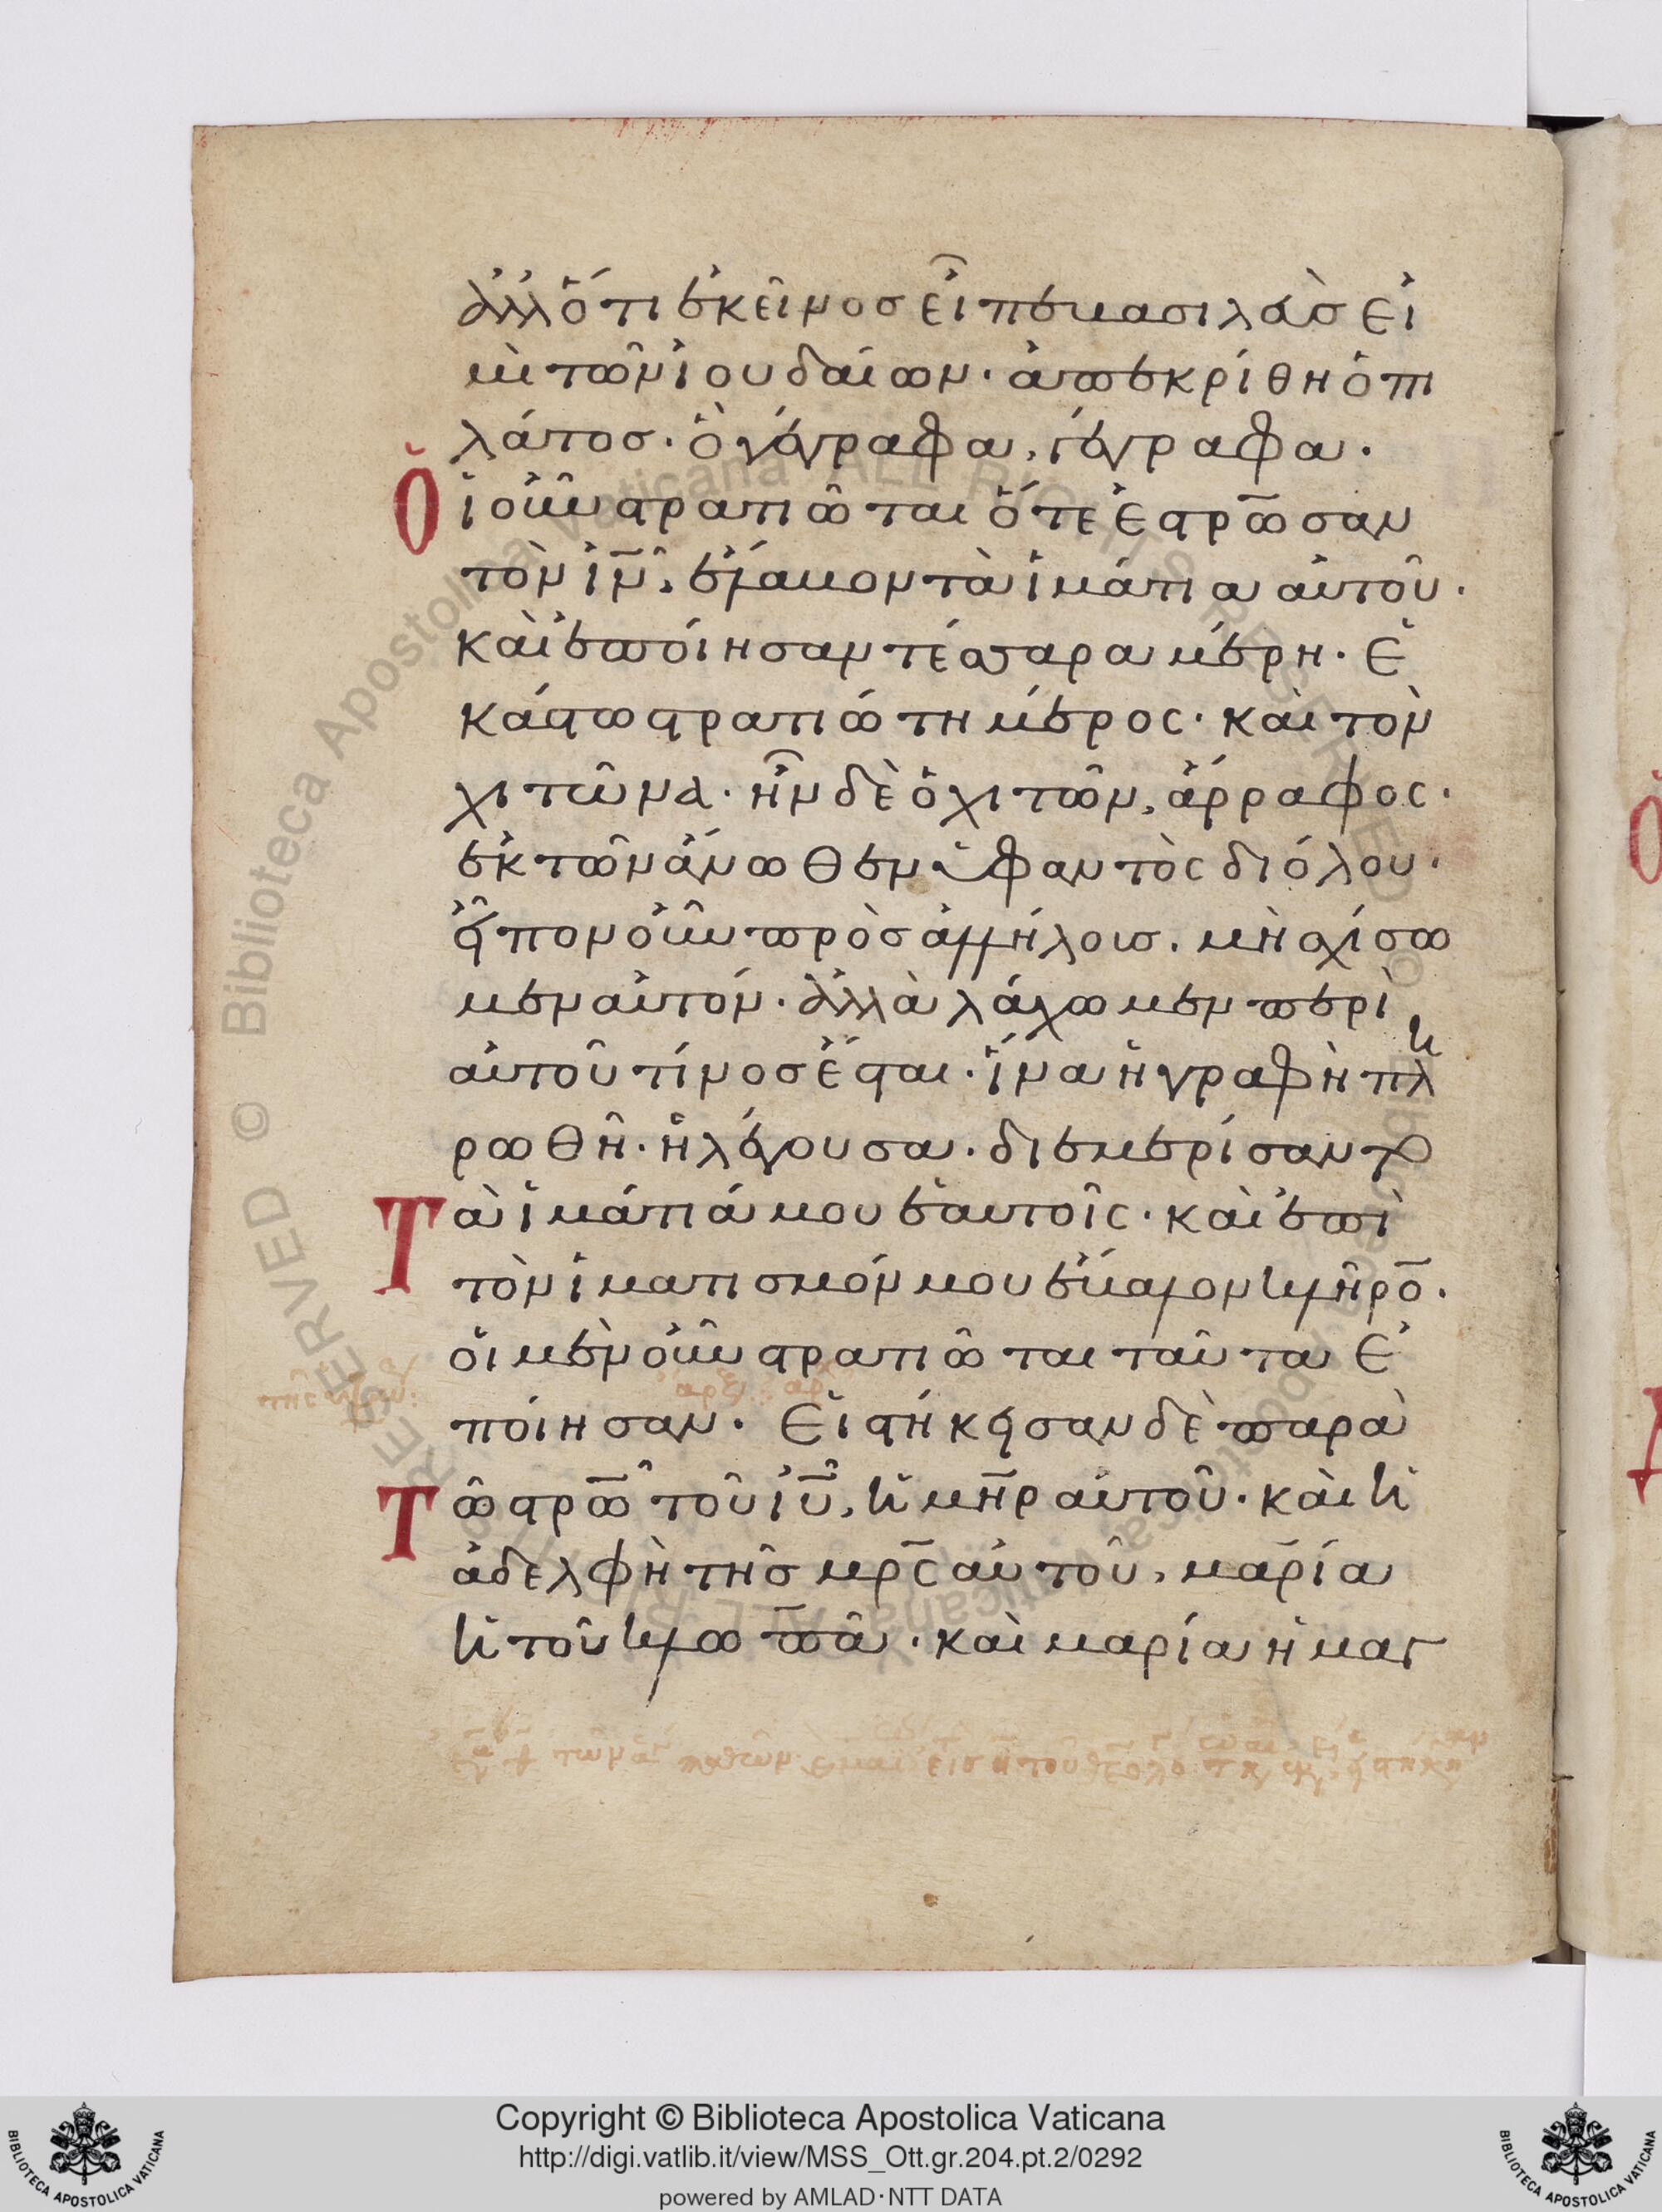 ἀλλ ὅτι ἐκεῖνοσ εἶπε βασιλεὺσ εἰ
μὶ τῶν ἰουδαίων· ἀπεκρίθη ὁ πι
λάτοσ· ὃ γέγραφα, γέγραφα·
Ὁι οὖν στρατιῶται ὅτε ἐστρω̅σαν
τὸν ἰ̅ν̅, ἔλαβον τὰ ἱμάτια αὐτοῦ·
καὶ ἐποίησαν τέσσαρα μέρη· ἑ
κάστω στρατιώτη μέρος· καὶ τὸν
χιτῶνα· ἦν δὲ ὁ χιτῶν, ἄρραφος·
ἐκ τῶν ἄνωθεν ὑφαντὸς διόλου·
εἶπον οὖν πρὸσ ἀλλήλοισ. μὴ σχίσω
μεν αὐτόν· ἀλλὰ λάχωμεν περὶ
αὐτοῦ τίνοσ ἔσται· ἵνα ἡ γραφὴ πλη
ρωθῆ· ἡ λέγουσα· διεμερίσαντο
Τὰ ἱμάτιά μου ἑαυτοῖς· καὶ ἐπὶ
τὸν ἱματισμόν μου ἔβαλον κλῆρο̅·
ὁι μὲν οὖν στρατιῶται ταῦτα ἐ
ποίησαν· Εἱστήκεισαν δὲ παρὰ
Τῶ στρω̅ τοῦ ἰ̅υ̅, ἡ μη̅ρ αὐτοῦ· καὶ ἡ
ἀδελφὴ τῆσ μρ̅ς αὐτοῦ, μαρία
ἡ τοῦ κλωπᾶ· καὶ μαρία ἡ μαγ
Biblioteca Apostolica Vaticana
Copyright © Biblioteca Apostolica Vaticana
http://digi.vatlib.it/view/MSS_Ott.gr.204.pt.2/0292
powered by AMLAD·NTT DATA
BIBLIOTECA APOSTOLICA VATICANA
BIBLIOTECA APOSTOLICA VATICANA